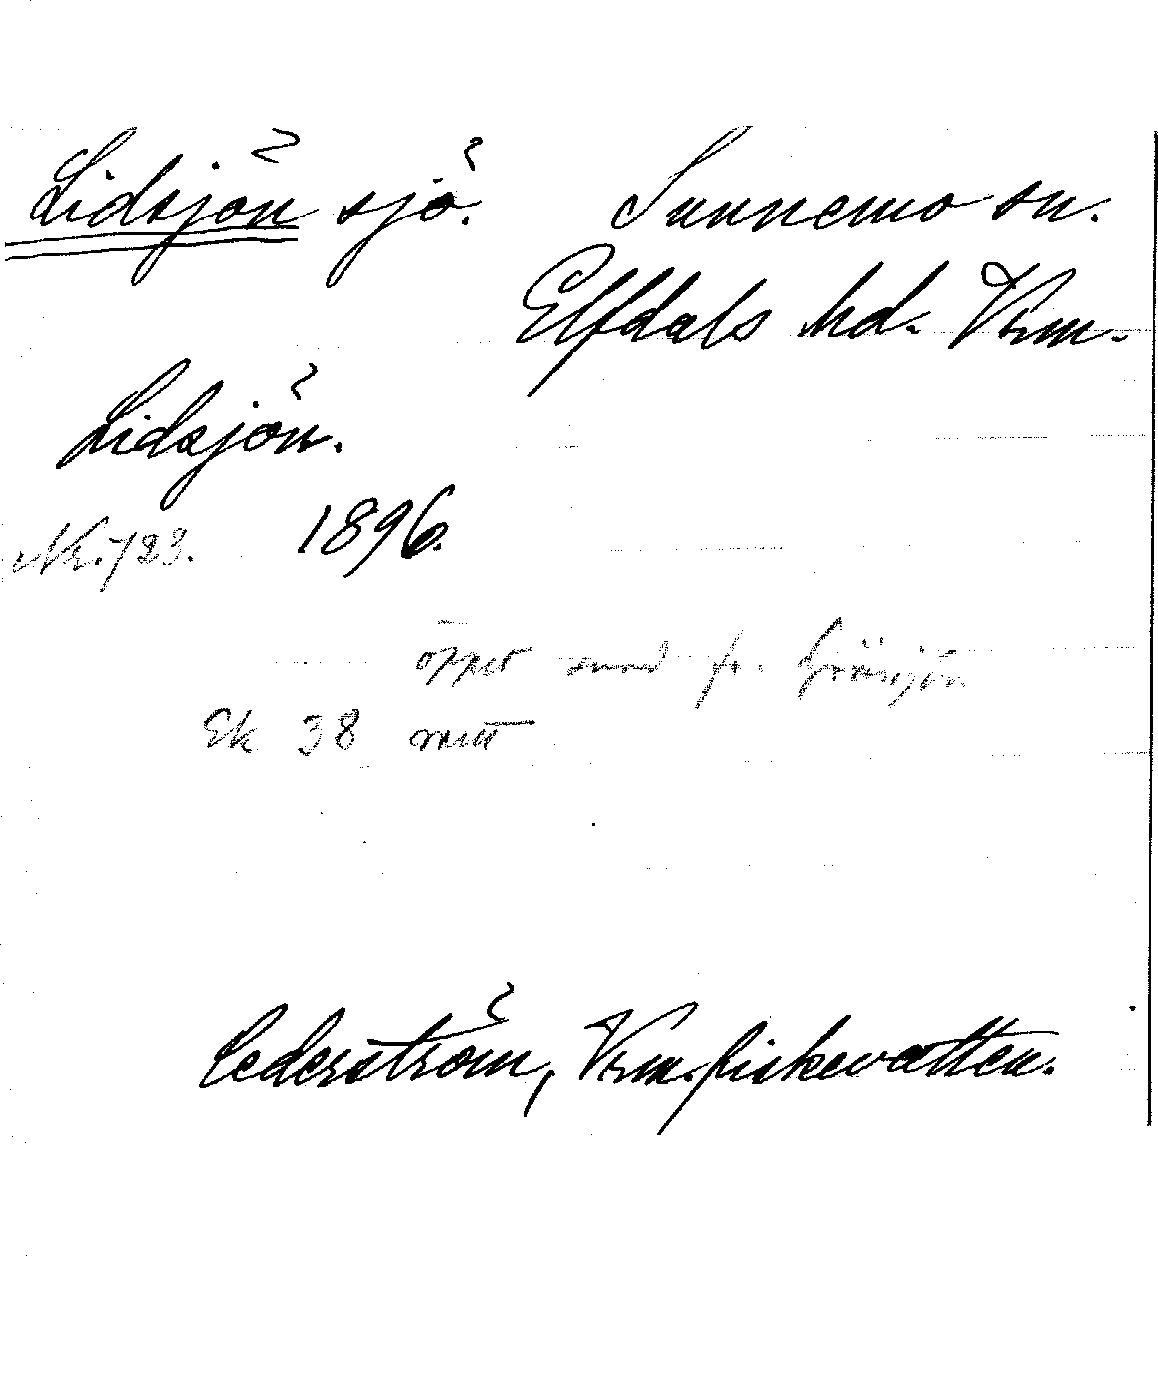 Lidsjön sjö. Sunnemo sn.
Elfdals hd. Vrm.
Lidsjön.
Nr. 723. 1896.
öppet sund fr.
Ek 38 
Cederström, Vrm. fiskevatten.